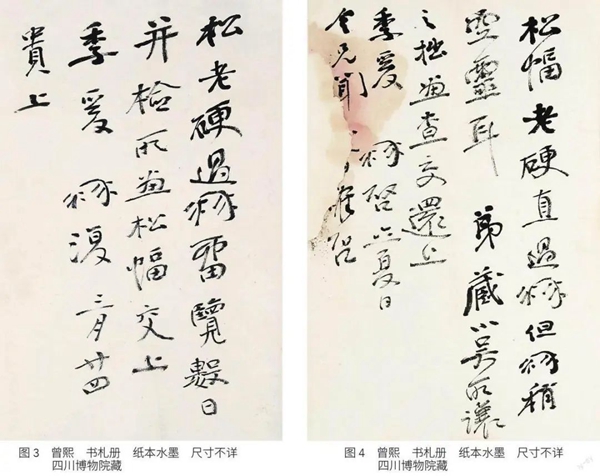 松老硬過髯留覽數日
并檢所畫松幅交上
季爰 髯復 三月廿四
貴上
图 3 曾熙 书札册 纸本水墨 尺寸不详
四川博物院藏
松幅老硬直過髯但髯稍
空靈耳 弟藏小吴所讓
之拙畫查交還上
季爰 髯啓立夏日
兄聞
图 4 曾熙 书札册 纸本水墨 尺寸不详
四川博物院藏